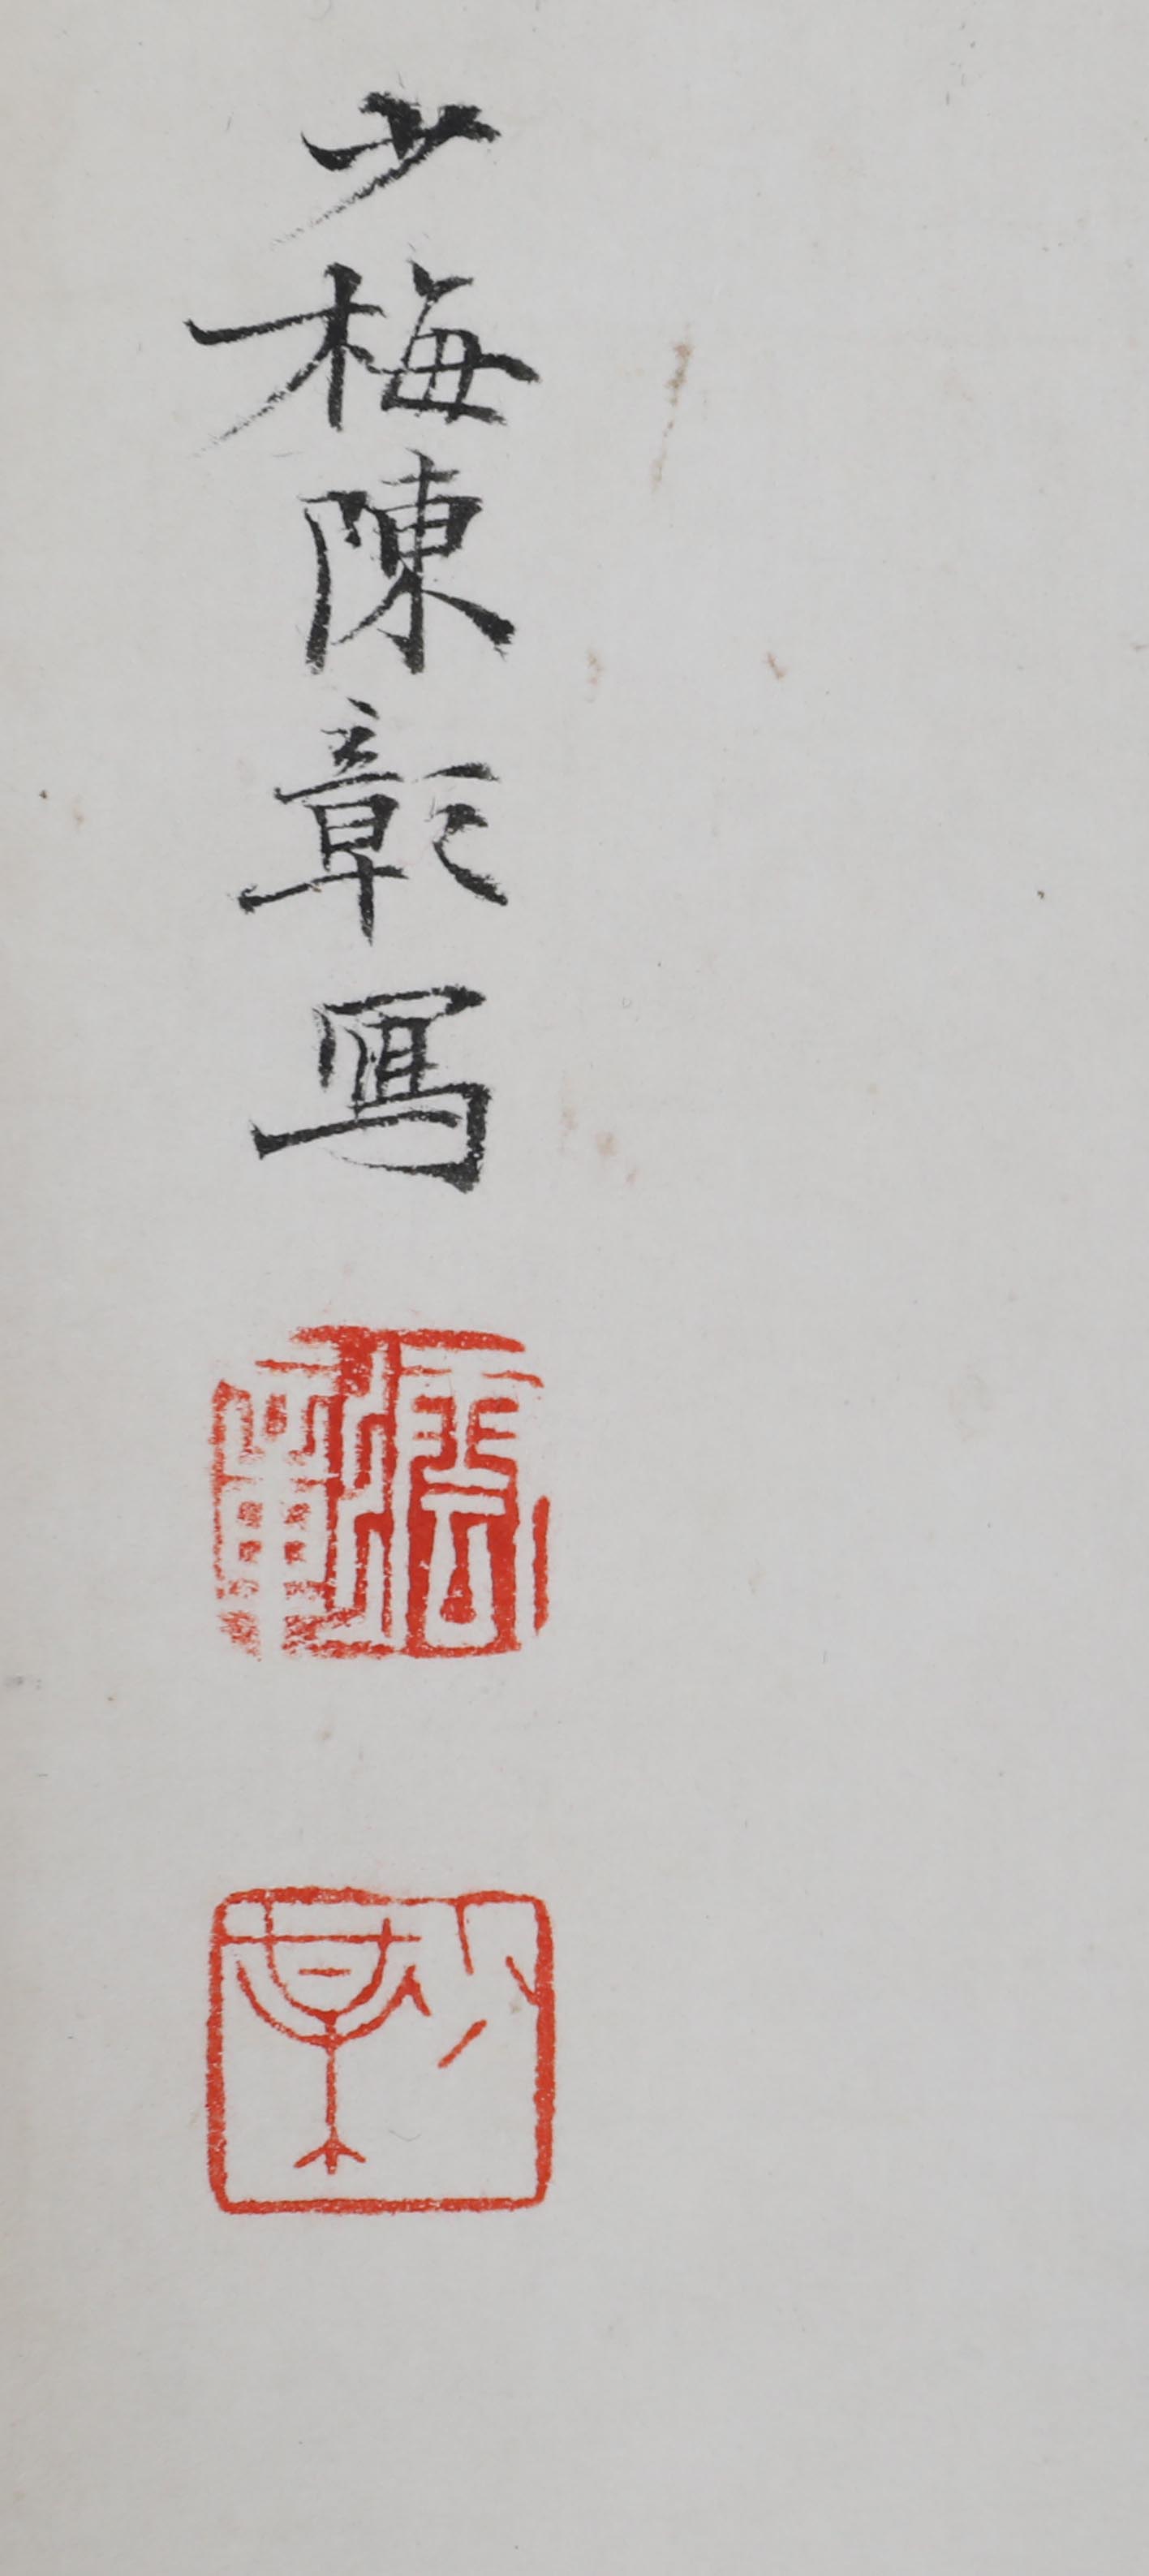 少梅陳彰寫